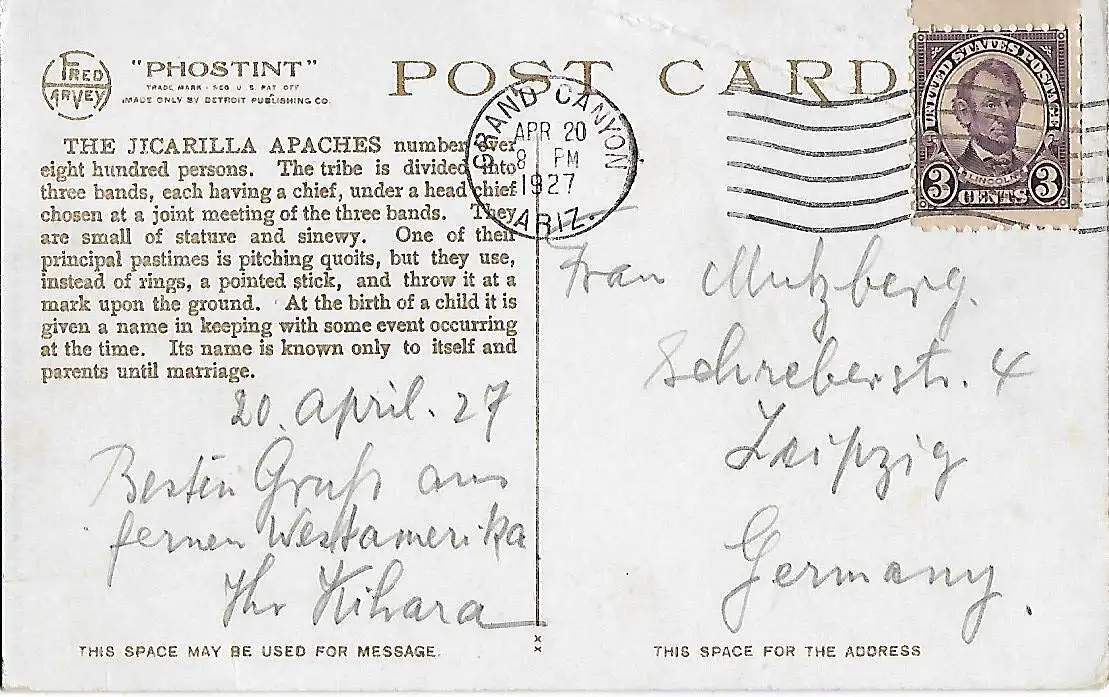 FRED HARVEY
"PHOSTINT"
TRADE MARK - REG U. S. PAT OFF
MADE ONLY BY DETROIT PUBLISHING CO.
POST CARD
THE JICARILLA APACHES number over
eight hundred persons. The tribe is divided into
three bands, each having a chief, under a head chief
chosen at a joint meeting of the three bands. They
are small of stature and sinewy. One of their
principal pastimes is pitching quoits, but they use,
instead of rings, a pointed stick, and throw it at a
mark upon the ground. At the birth of a child it is
given a name in keeping with some event occurring
at the time. Its name is known only to itself and
parents until marriage.
20. April. 27
Besten Gruß aus
fernen Westamerika
Ihr Kihara
THIS SPACE MAY BE USED FOR MESSAGE.
GRAND CANYON
APR 20
8 PM
1927
ARIZ.
UNITED STATES POSTAGE
LINCOLN
3 CENTS 3
Frau Mutzberg.
Schreberstr. 4
Leipzig
Germany.
THIS SPACE FOR THE ADDRESS